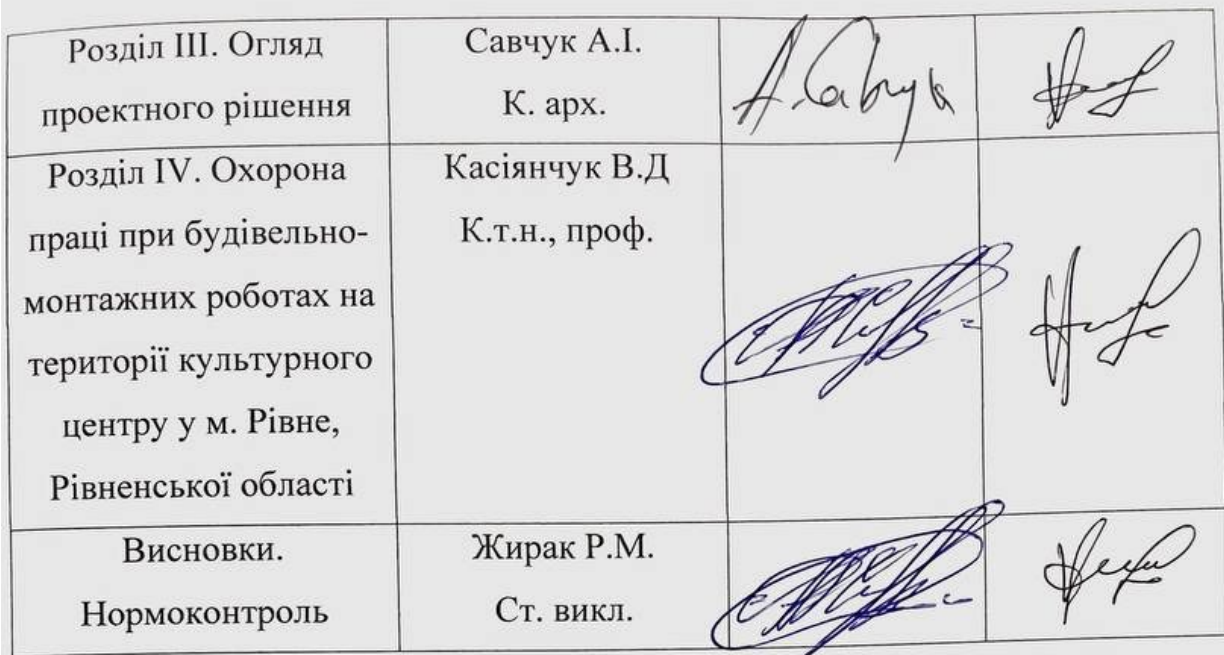 Розділ III. Огляд
проектного рішення
Савчук А.І.
К. арх.
А.Савчук
Розділ IV. Охорона
праці при будівельно-
монтажних роботах на
території культурного
центру у м. Рівне,
Рівненської області
Касіянчук В.Д
К.т.н., проф.
Висновки.
Нормоконтроль
Жирак Р.М.
Ст. викл.